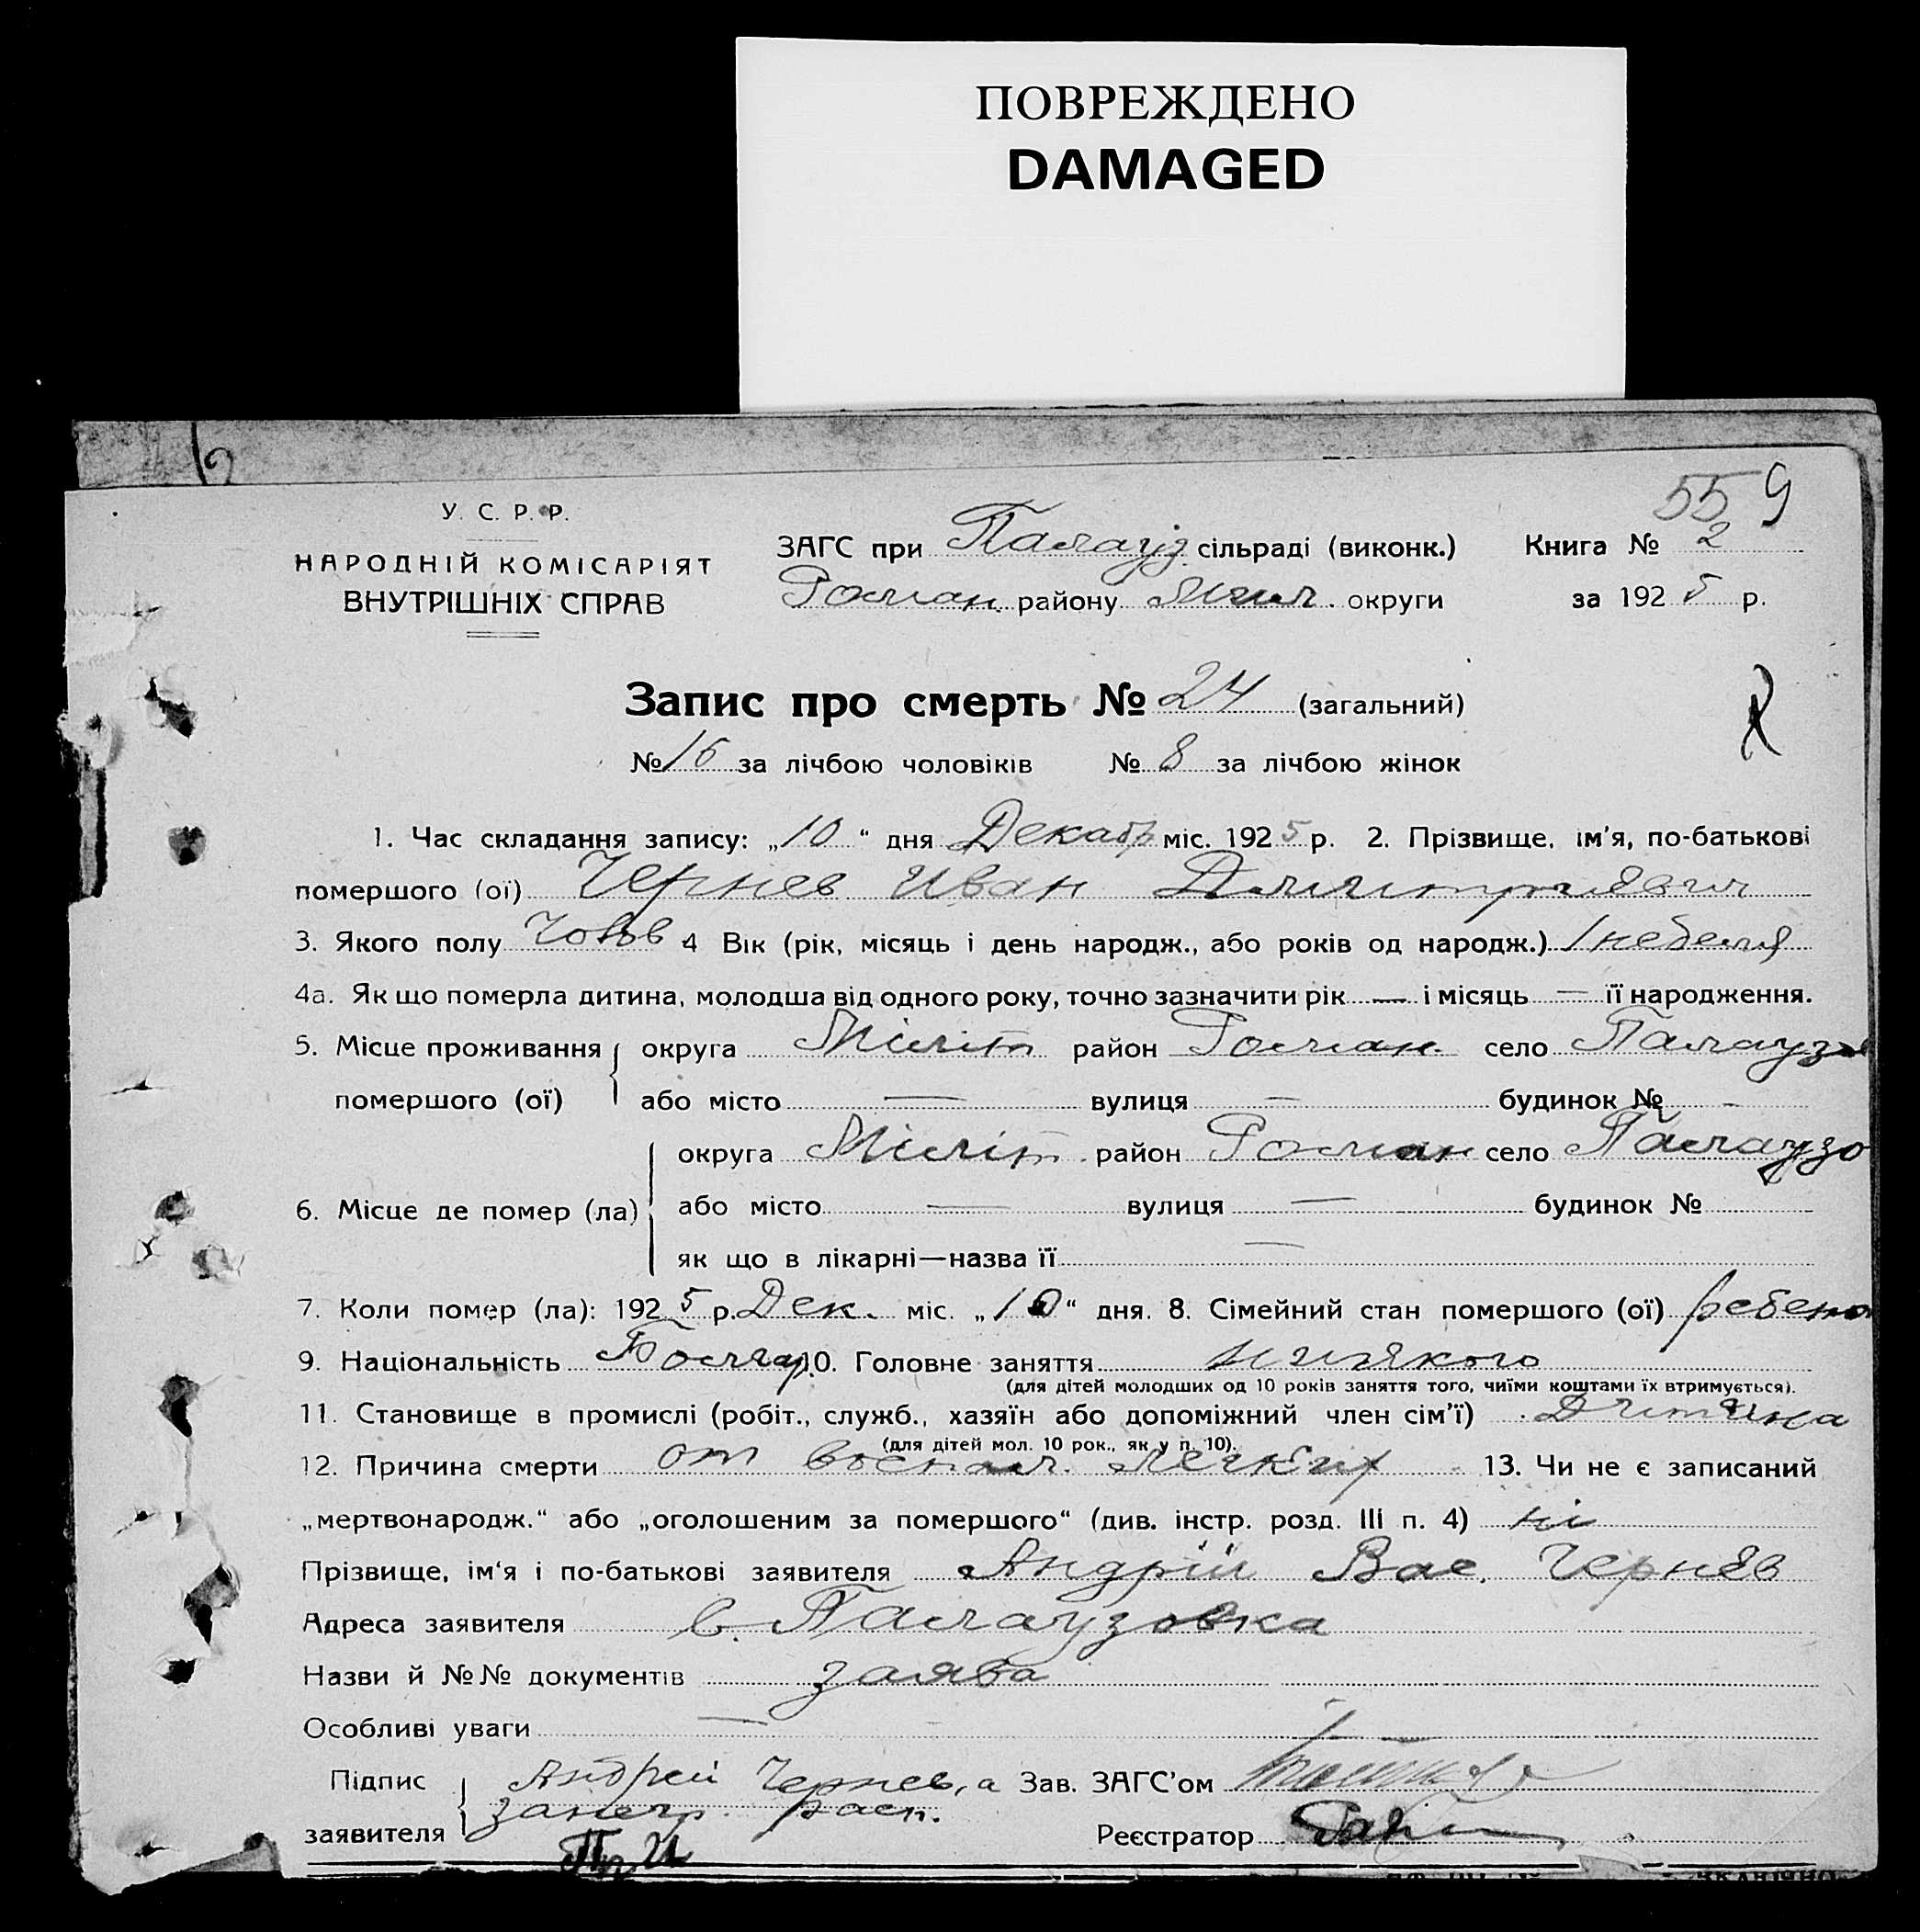 ПОВРЕЖДЕНО
DAMAGED
55 9
У. С. Р. Р.
НАРОДНІЙ КОМІСАРІЯТ
ВНУТРІШНІХ СПРАВ
ЗАГС при Палауз. сільраді (виконк.) Книга № 2
Росман. району округи за 1925 р.
Запис про смерть № 24 (загальний)
№ 16 за лічбою чоловіків № 8 за лічбою жінок
1. Час складання запису: „10“ дня Декабр міс. 1925 р. 2. Прізвище, ім'я, по-батькові
помершого (ої) Чернев Иван Дмитриевич
3. Якого полу 4 Вік (рік, місяць і день народж., або років од народж.) 1 неделя
4а. Як що померла дитина, молодша від одного року, точно зазначити рік — і місяць — її народження.
5. Місце проживання округа район Росман. село Палаузо
помершого (ої) або місто — вулиця — будинок № -
округа район Росман село Палаузо
6. Місце де помер (ла) або місто — вулиця — будинок №
як що в лікарні—назва її —
7. Коли помер (ла): 1925 р. Дек. міс. „10“ дня. 8. Сімейний стан помершого (ої) ребено
9. Національність Болгар 10. Головне заняття ниякого
(для дітей молодших од 10 років заняття того, чиїми коштами їх втримується).
11. Становище в промислі (робіт., служб., хазяїн або допоміжний член сім'ї) Дитина
(для дітей мол. 10 рок., як у п. 10).
12. Причина смерти от воспал. легких 13. Чи не є записаний
„мертвонародж.“ або „оголошеним за померщого“ (див. інстр. розд. III п. 4) ні
Прізвище, ім'я і по-батькові заявителя Андрій Вас. Чернев
Адреса заявителя с. Палаузовка
Назви й №№ документів заява
Особливі уваги —
Підпис Андрей Чернев, а Зав. ЗАГС'ом
заявителя занегр. расп. Реєстратор